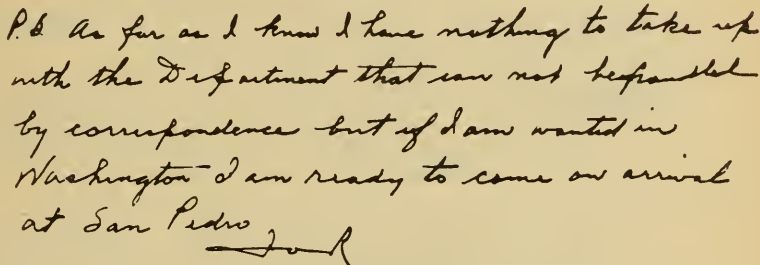 P.S. As far as I know I have nothing to take up
with the Department that can not be handled
by correspondence but if I am wanted in
Washington I am ready to come on arrival
at San Pedro